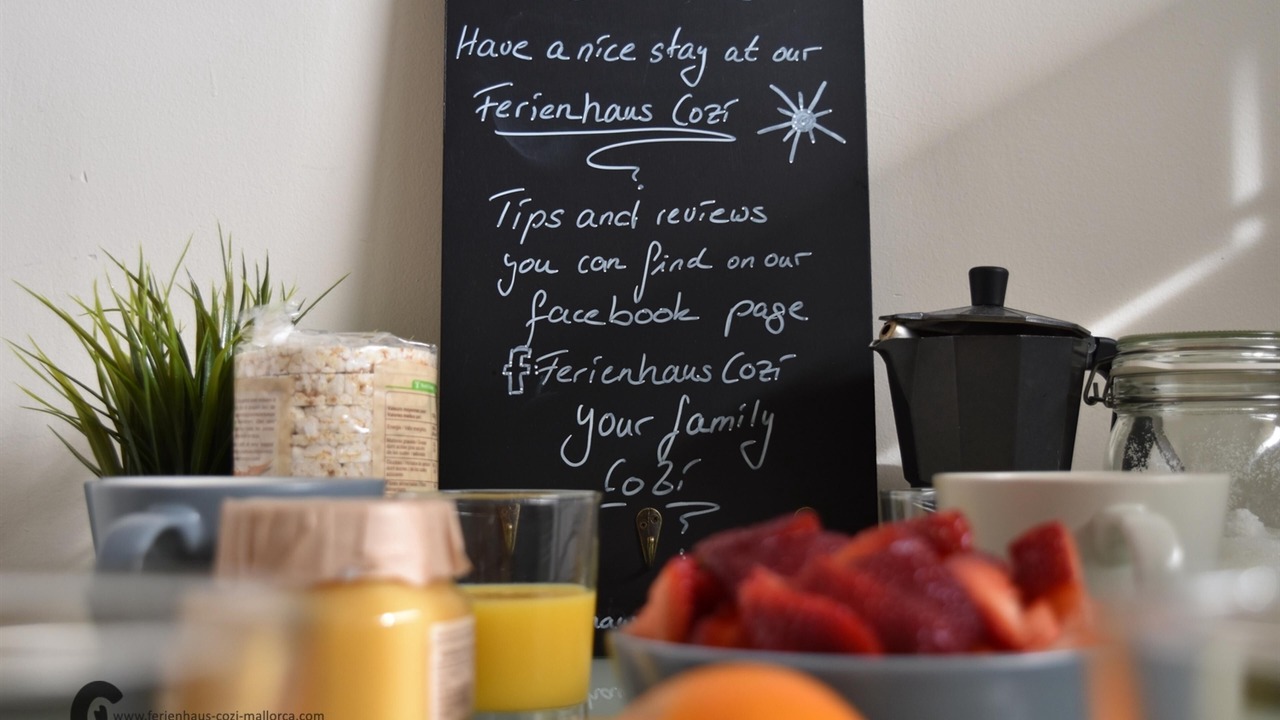 Have a nice stay at our
Ferienhaus Cozi
Tips and reviews
you can find on our
facebook page
f Ferienhaus Cozi
your family
Cozi
www.ferienhaus-cozi-mallorca.com